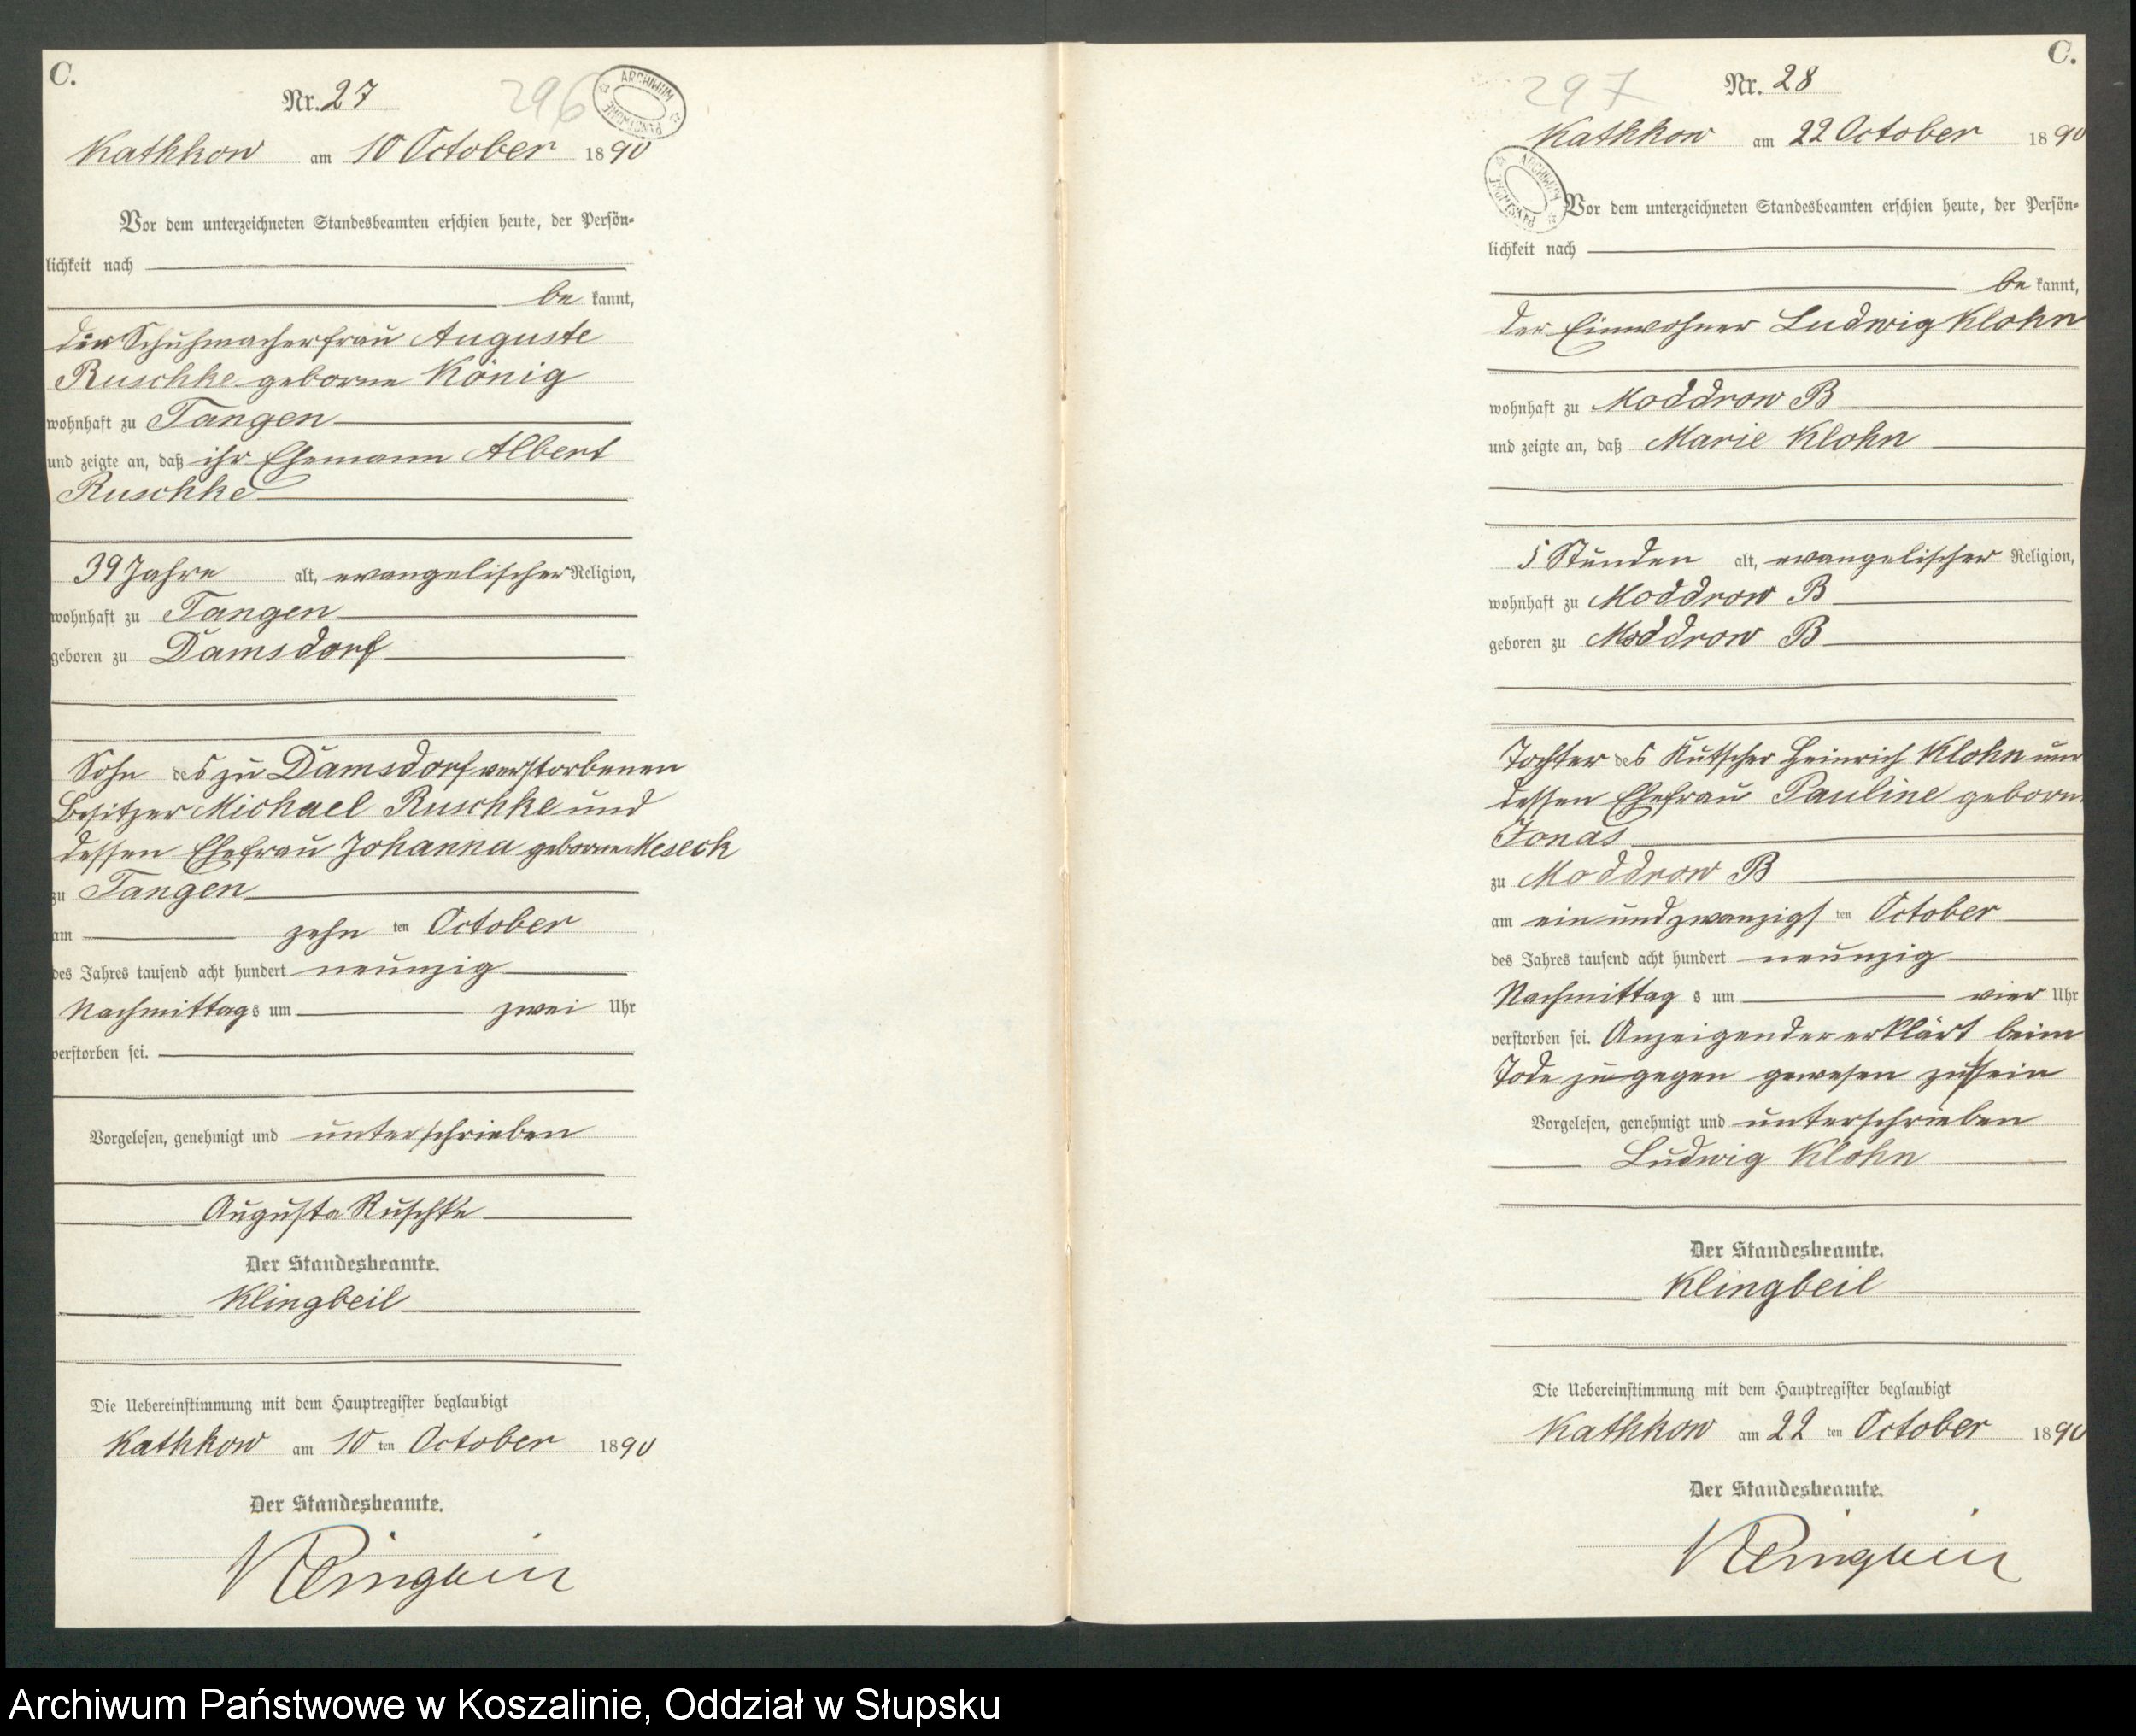 C.
Nr. 27
296
ARCHIWUM PAŃSTWOWE
Kathkow am 10 October 1890
Vor dem unterzeichneten Standesbeamten erschien heute, der Persön-
lichkeit nach
be kannt,
die Schuhmacherfrau Auguste
Ruschke geborne König
wohnhaft zu Tangen
und zeigte an, daß ihr Ehemann Albert
Ruschke
39 Jahre alt, evangelischer Religion,
wohnhaft zu Tangen
geboren zu Damsdorf
Sohn des zu Damsdorf verstorbenen
Besitzer Michael Ruschke und
dessen Ehefrau Johanna geborne Meseck
zu Tangen
am zehn ten October
des Jahres tausend acht hundert neunzig
Nachmittags um zwei Uhr
verstorben sei.
Vorgelesen, genehmigt und unterschrieben
Auguste Ruschke
Der Standesbeamte.
Klingbeil
Die Uebereinstimmung mit dem Hauptregister beglaubigt
Kathkow am 10 ten October 1890
Der Standesbeamte.
Klingbeil
C.
Nr. 28
297
Kathkow am 22 October 1890
ARCHIWUM PAŃSTWOWE
Vor dem unterzeichneten Standesbeamten erschien heute, der Persön-
lichkeit nach
be kannt,
der Einwohner Ludwig Klohn
wohnhaft zu Moddrow B
und zeigte an, daß Marie Klohn
5 Stunden alt, evangelischer Religion,
wohnhaft zu Moddrow B
geboren zu Moddrow B
Tochter des Kutscher Heinrich Klohn und
dessen Ehefrau Pauline geborne
Jonas
zu Moddrow B
am ein und zwanzigs ten October
des Jahres tausend acht hundert neunzig
Nachmittag s um vier Uhr
verstorben sei. Anzeigender erklärt beim
Tode zugegen gewesen zu sein
Vorgelesen, genehmigt und unterschrieben
Ludwig Klohn
Der Standesbeamte.
Klingbeil
Die Uebereinstimmung mit dem Hauptregister beglaubigt
Kathkow am 22 ten October 1890
Der Standesbeamte.
Klingbeil
Archiwum Państwowe w Koszalinie, Oddział w Słupsku